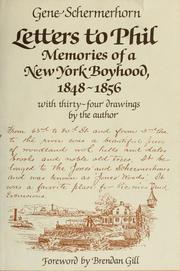 Gene Schermerhorn
Letters to Phil
Memories of a
New York Boyhood,
1848-1856
with thirty-four drawings
by the author
From 65th to 70th St and from 3rd Ave
to the river was a beautiful piece
of woodland with hills and dales
brooks and noble old trees. It be-
longed to the Jones and Schermerhorns
and was known as Jones' Woods. It
was a favorite place for Picnics and
Excursions.
Foreword by Brendan Gill